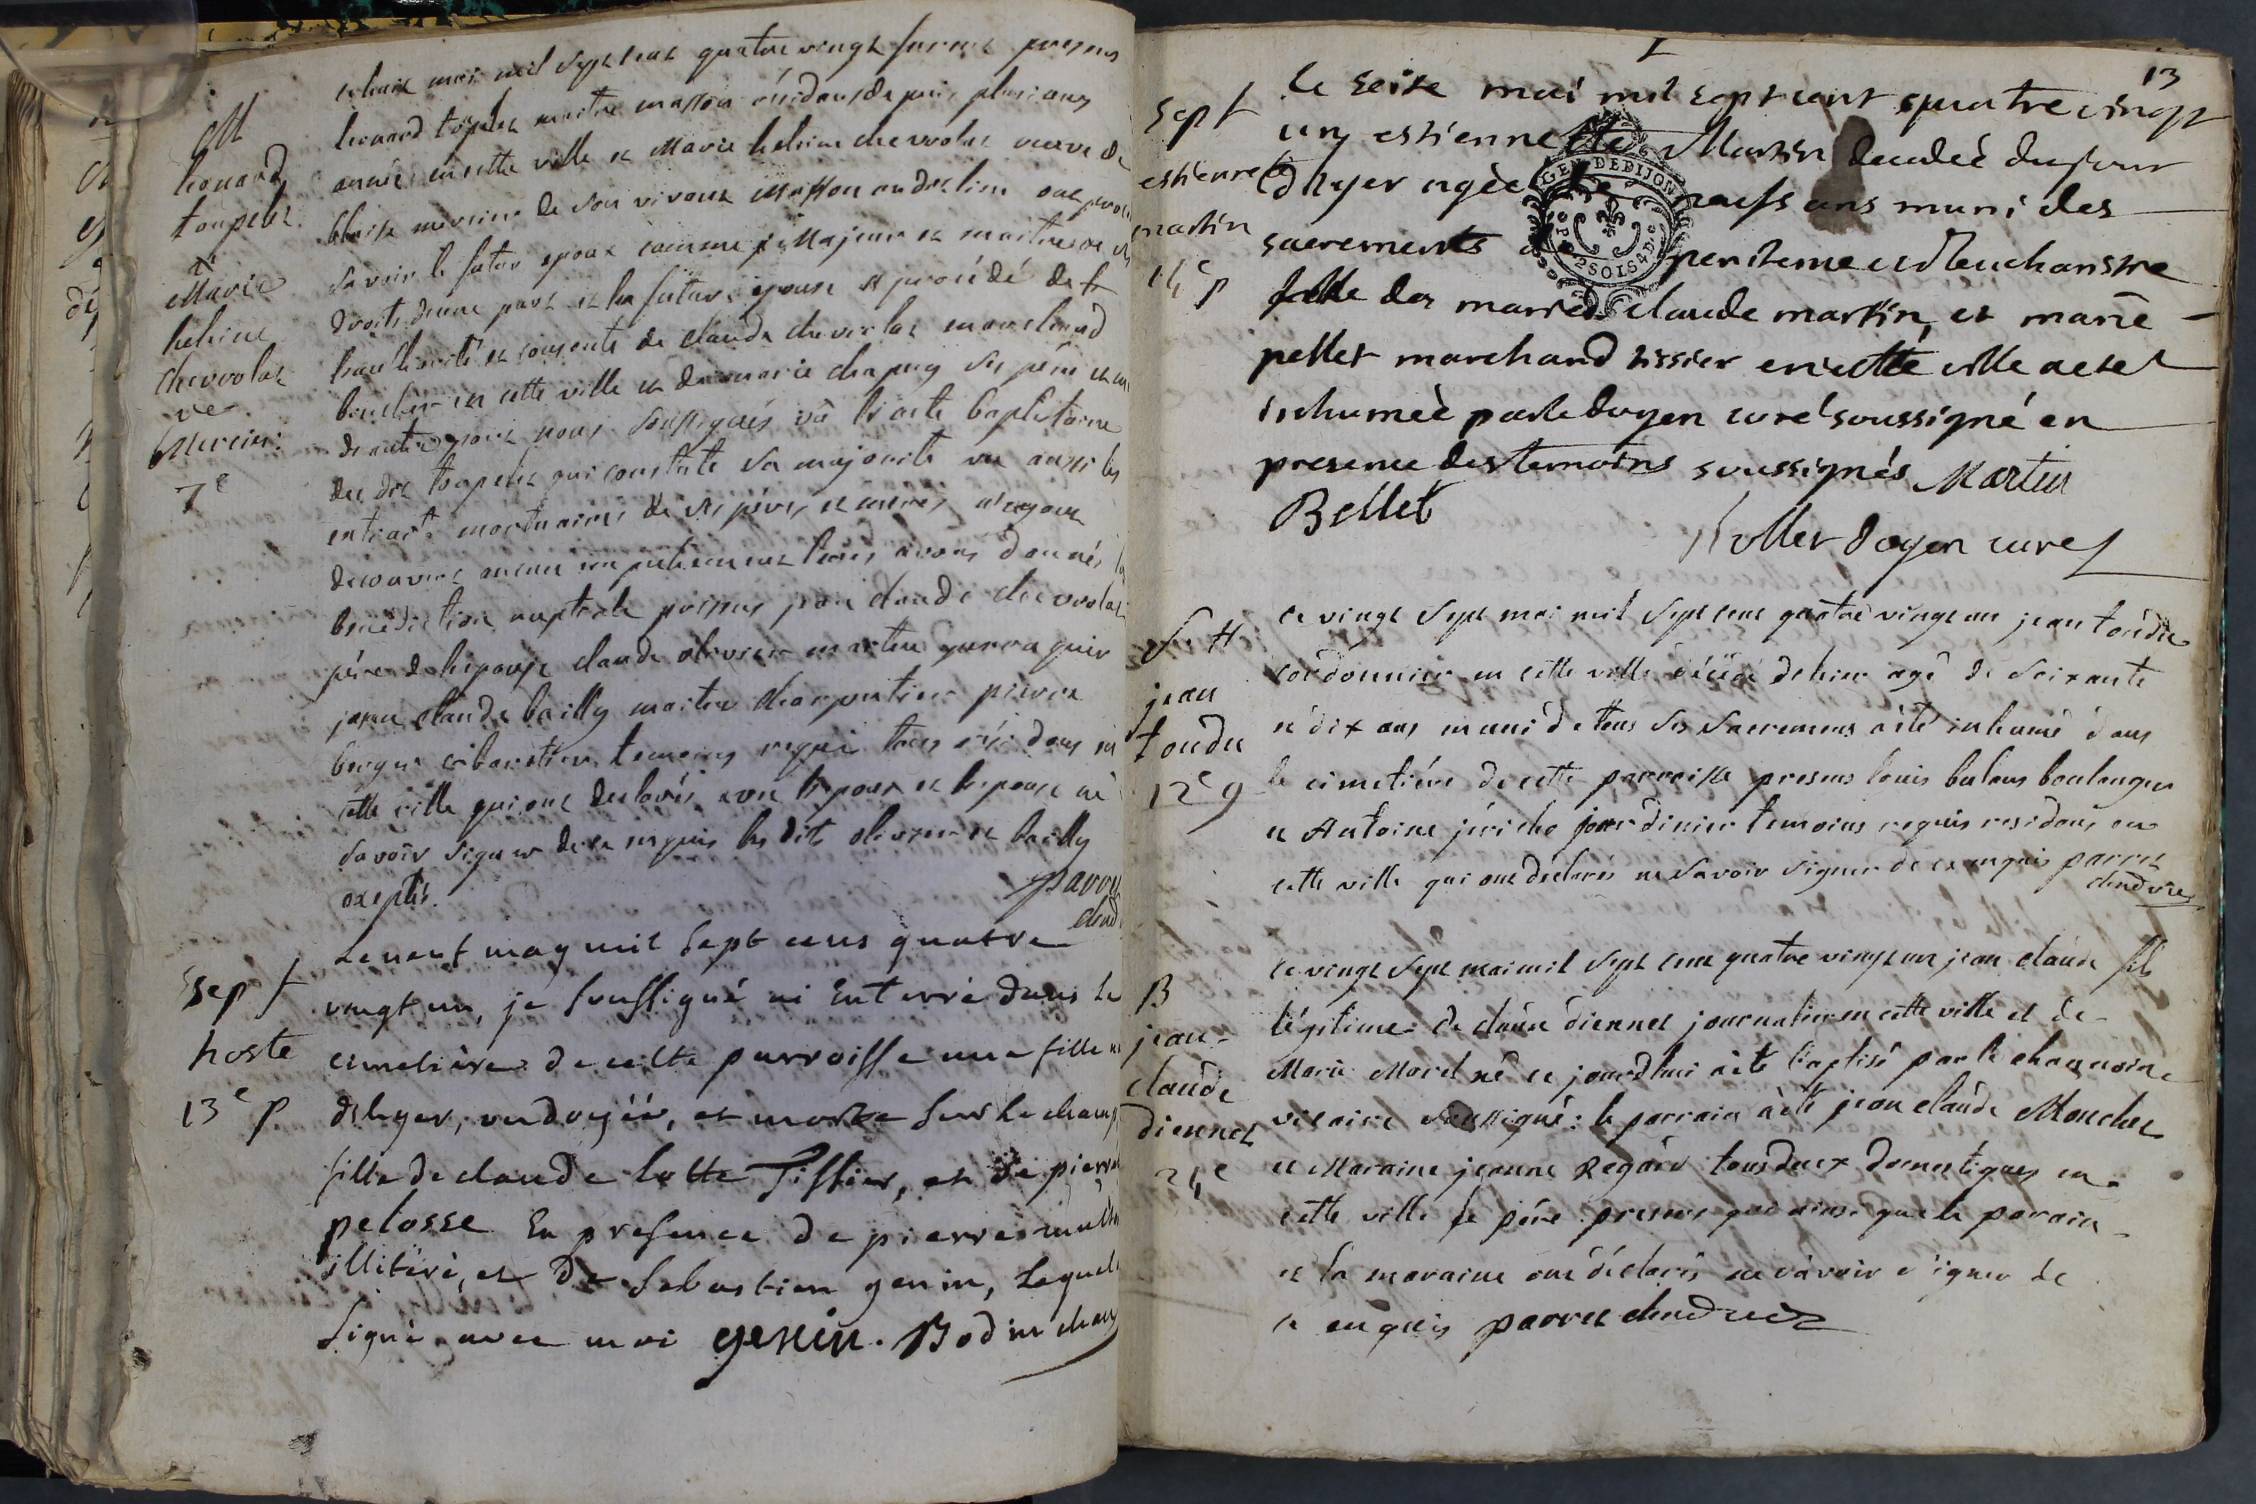 M
leonard
toupelet
et
Marie
helene
chevrolat
ve
Mercier
7e
le huit mai mil sept cent quatre vingt furent presens
leonard toupelet maitre masson résidans depuis plusieurs
années en cette ville et Marie helene chevrolat veuve de
blaise mercier de son vivant masson
savoir le futur epoux comme Majeur et maitre de ses
droits d'une part et la future epouse et procédé de
l'authorité et consente de claude chevrolat marchand
boucher en cette ville et de marie chapuy ses père et
d'autre part nous soussignés vû l'acte baptistaire
du dit toupelet qui constate sa majorité vu aussi les
extrait mortuaires de ses pères et mères n'ayant
decouvert aucun empechement leurs avons donnés la
benediction nuptiale presens pour claude chevrolat
père de l'epouse claude olivier martin perraquier
jean claude bailly maitre charpentier pierre
cabaretier temoins requis tous résidans en
cette ville qui ont declarés avec l'epoux et l'epouse ne
savoir signer de ce enquis les dits olivier et bailly
exeptés.
parret
chad
sep f
hoste
13e p.
Le neuf may mil sept cens quatre
vingt un, je soussigné ai Enterré dans le
cimetiere de cette parroisse une fille
d'hyer, ondoyée, et morte sur le champ
fille de claude hotte Tissier, et de pierrette
pelosse En presence de pierre
illiteré, et de Sebastien genin, Lequel
signé avec moi genin. Bodin
13
sept
estiennette
martin
14e p
le seize mai mil sept cent quatre vingt
un estiennette Martin decedeé du jour
d'hyer ageé de neufs ans muni des
sacrements de penitence et d'eucharistie
fille des mariés claude martin, et marie
pellet marchand tissier en cette ville a eté
inhumeé par le doyen curé soussigné en
presence des temoins soussignés Martin
Bellet
doyen curé
S. H
jean
toudu
12e g
Ce vingt sept mai mil sept cent quatre vingt un jean toudu
cordonnier en cette ville décédé dehier agé de soixante
et dix ans muni de tous ses sacremens a été inhumé dans
le cimetiére de cette parroisse presens louis boulanger
et Antoine jéricho jardinier temoins requis residans en
cette ville qui ont declarés ne savoir signer de ce enquis parret
chad vic
B
jean
claude
diennet
24e
ce vingt sept mai mil sept cent quatre vingt un jean claude fils
légitime de claude diennet journalier en cette ville et de
Marie Morel né ce jourdhui a été baptisé par le chanoine
vicaire soussigné: le parrain a été jean claude Mouchet
et Maraine jeanne Regard tous deux domestiques en
cette ville le pére presens qui ainsi que le parain
et la maraine ont déclarés ne savoir signer de
ce enquis parret chad vic